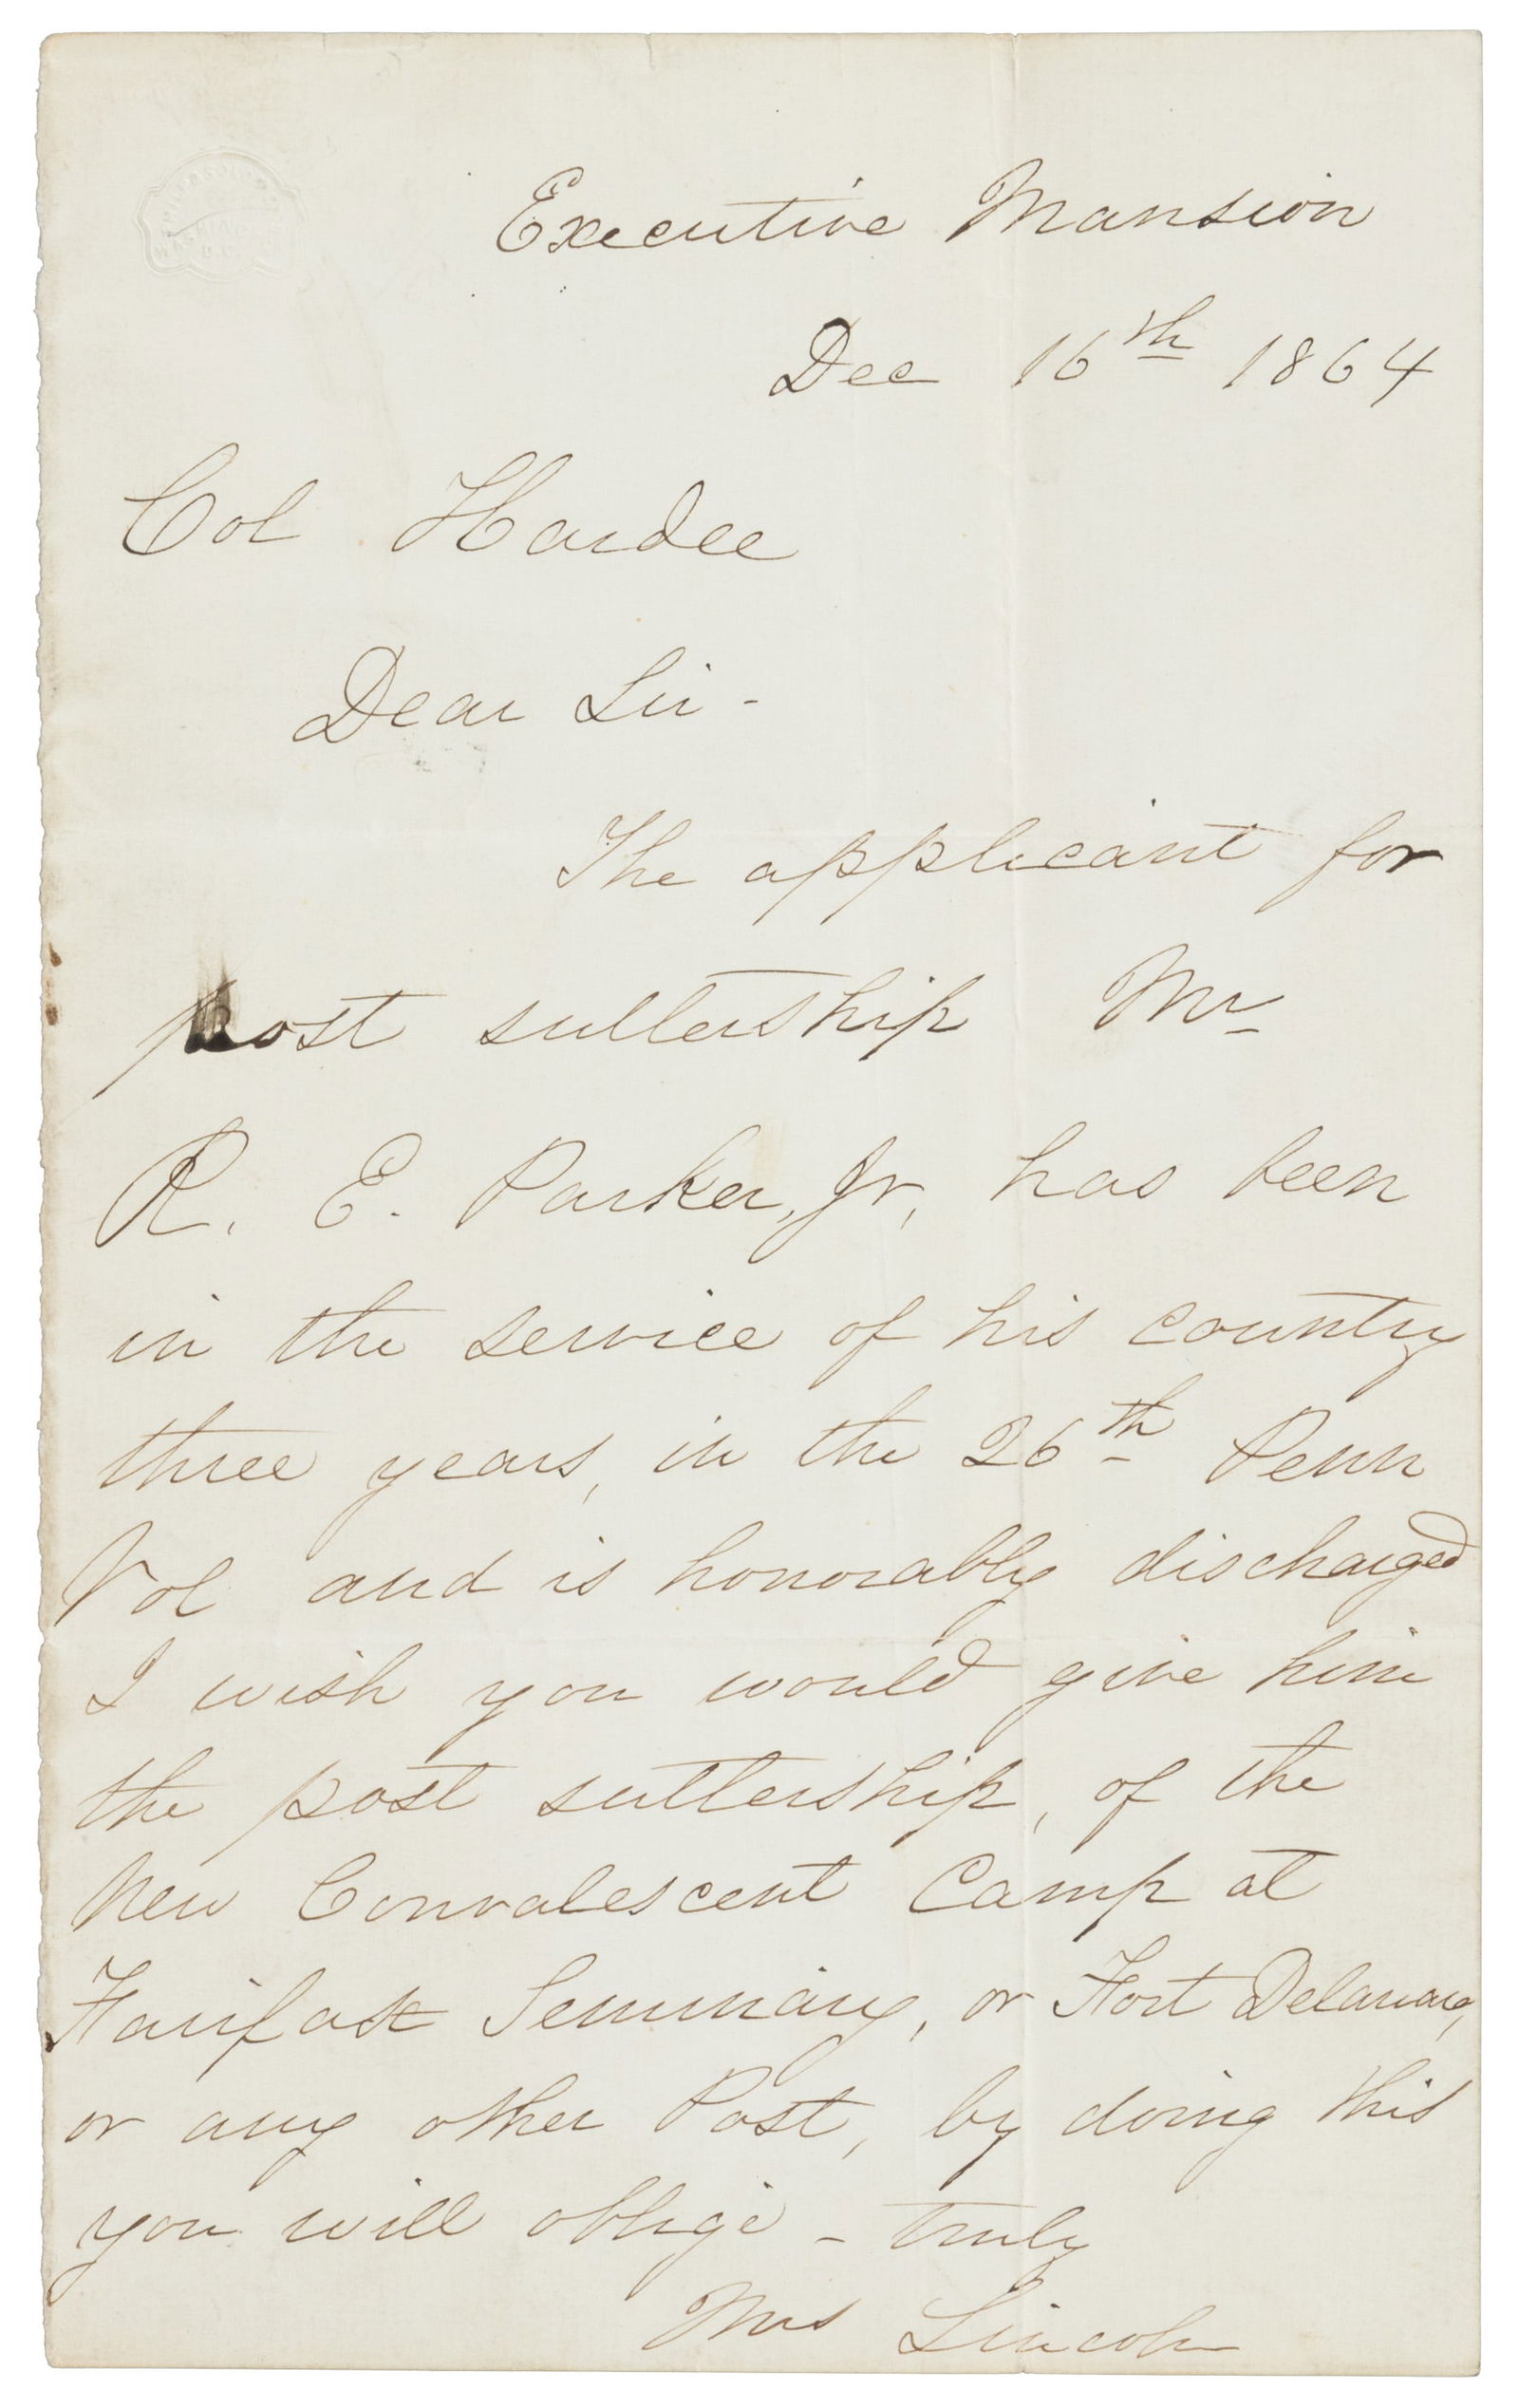 Executive Mansion
Dec 16th 1864
Col Hardee
Dear Sir -
The applicant for
post sutlership Mr
R. E. Parker, Jr, has been
in the service of his country
three years, in the 26th Penn
Vol and is honorably discharged
I wish you would give him
the post sutlership, of the
New Convalescent Camp at
Fairfax Seminary, or Fort Delaware,
or any other Post, by doing this
you will oblige - truly
Mrs Lincoln